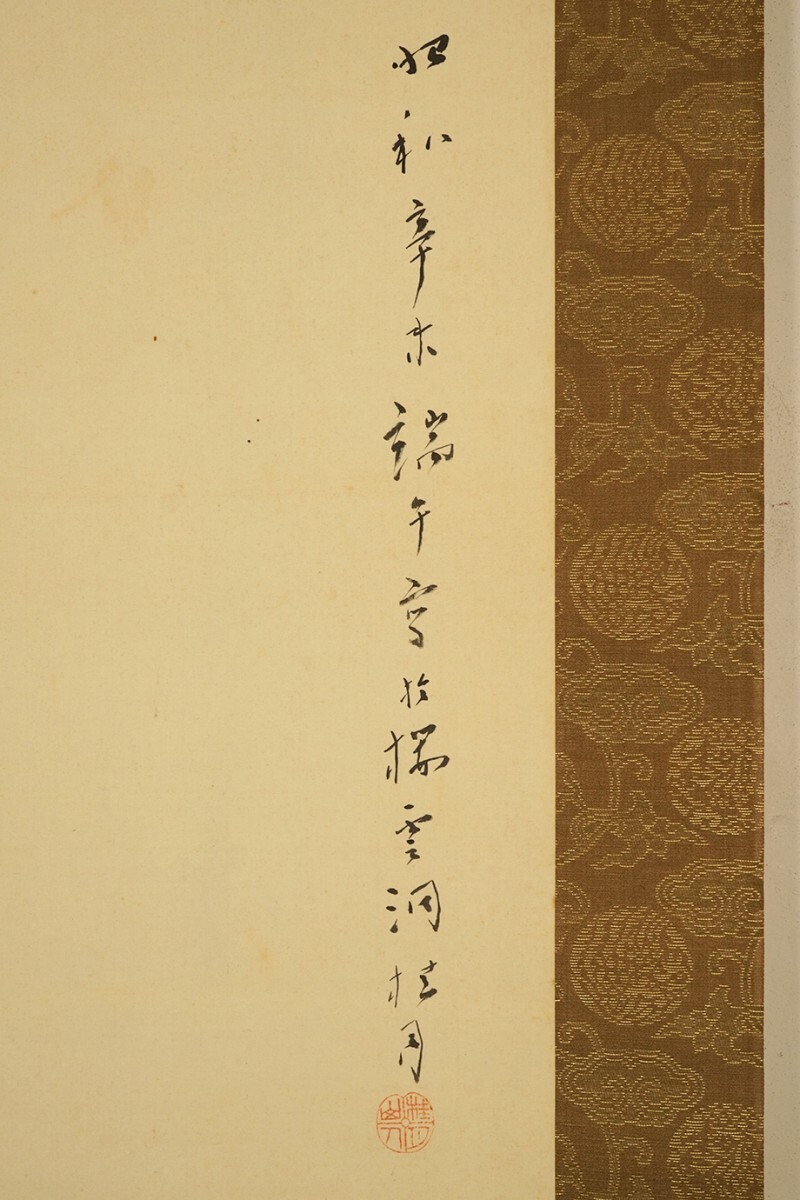 昭和辛未端午写於樱雲洞桂月